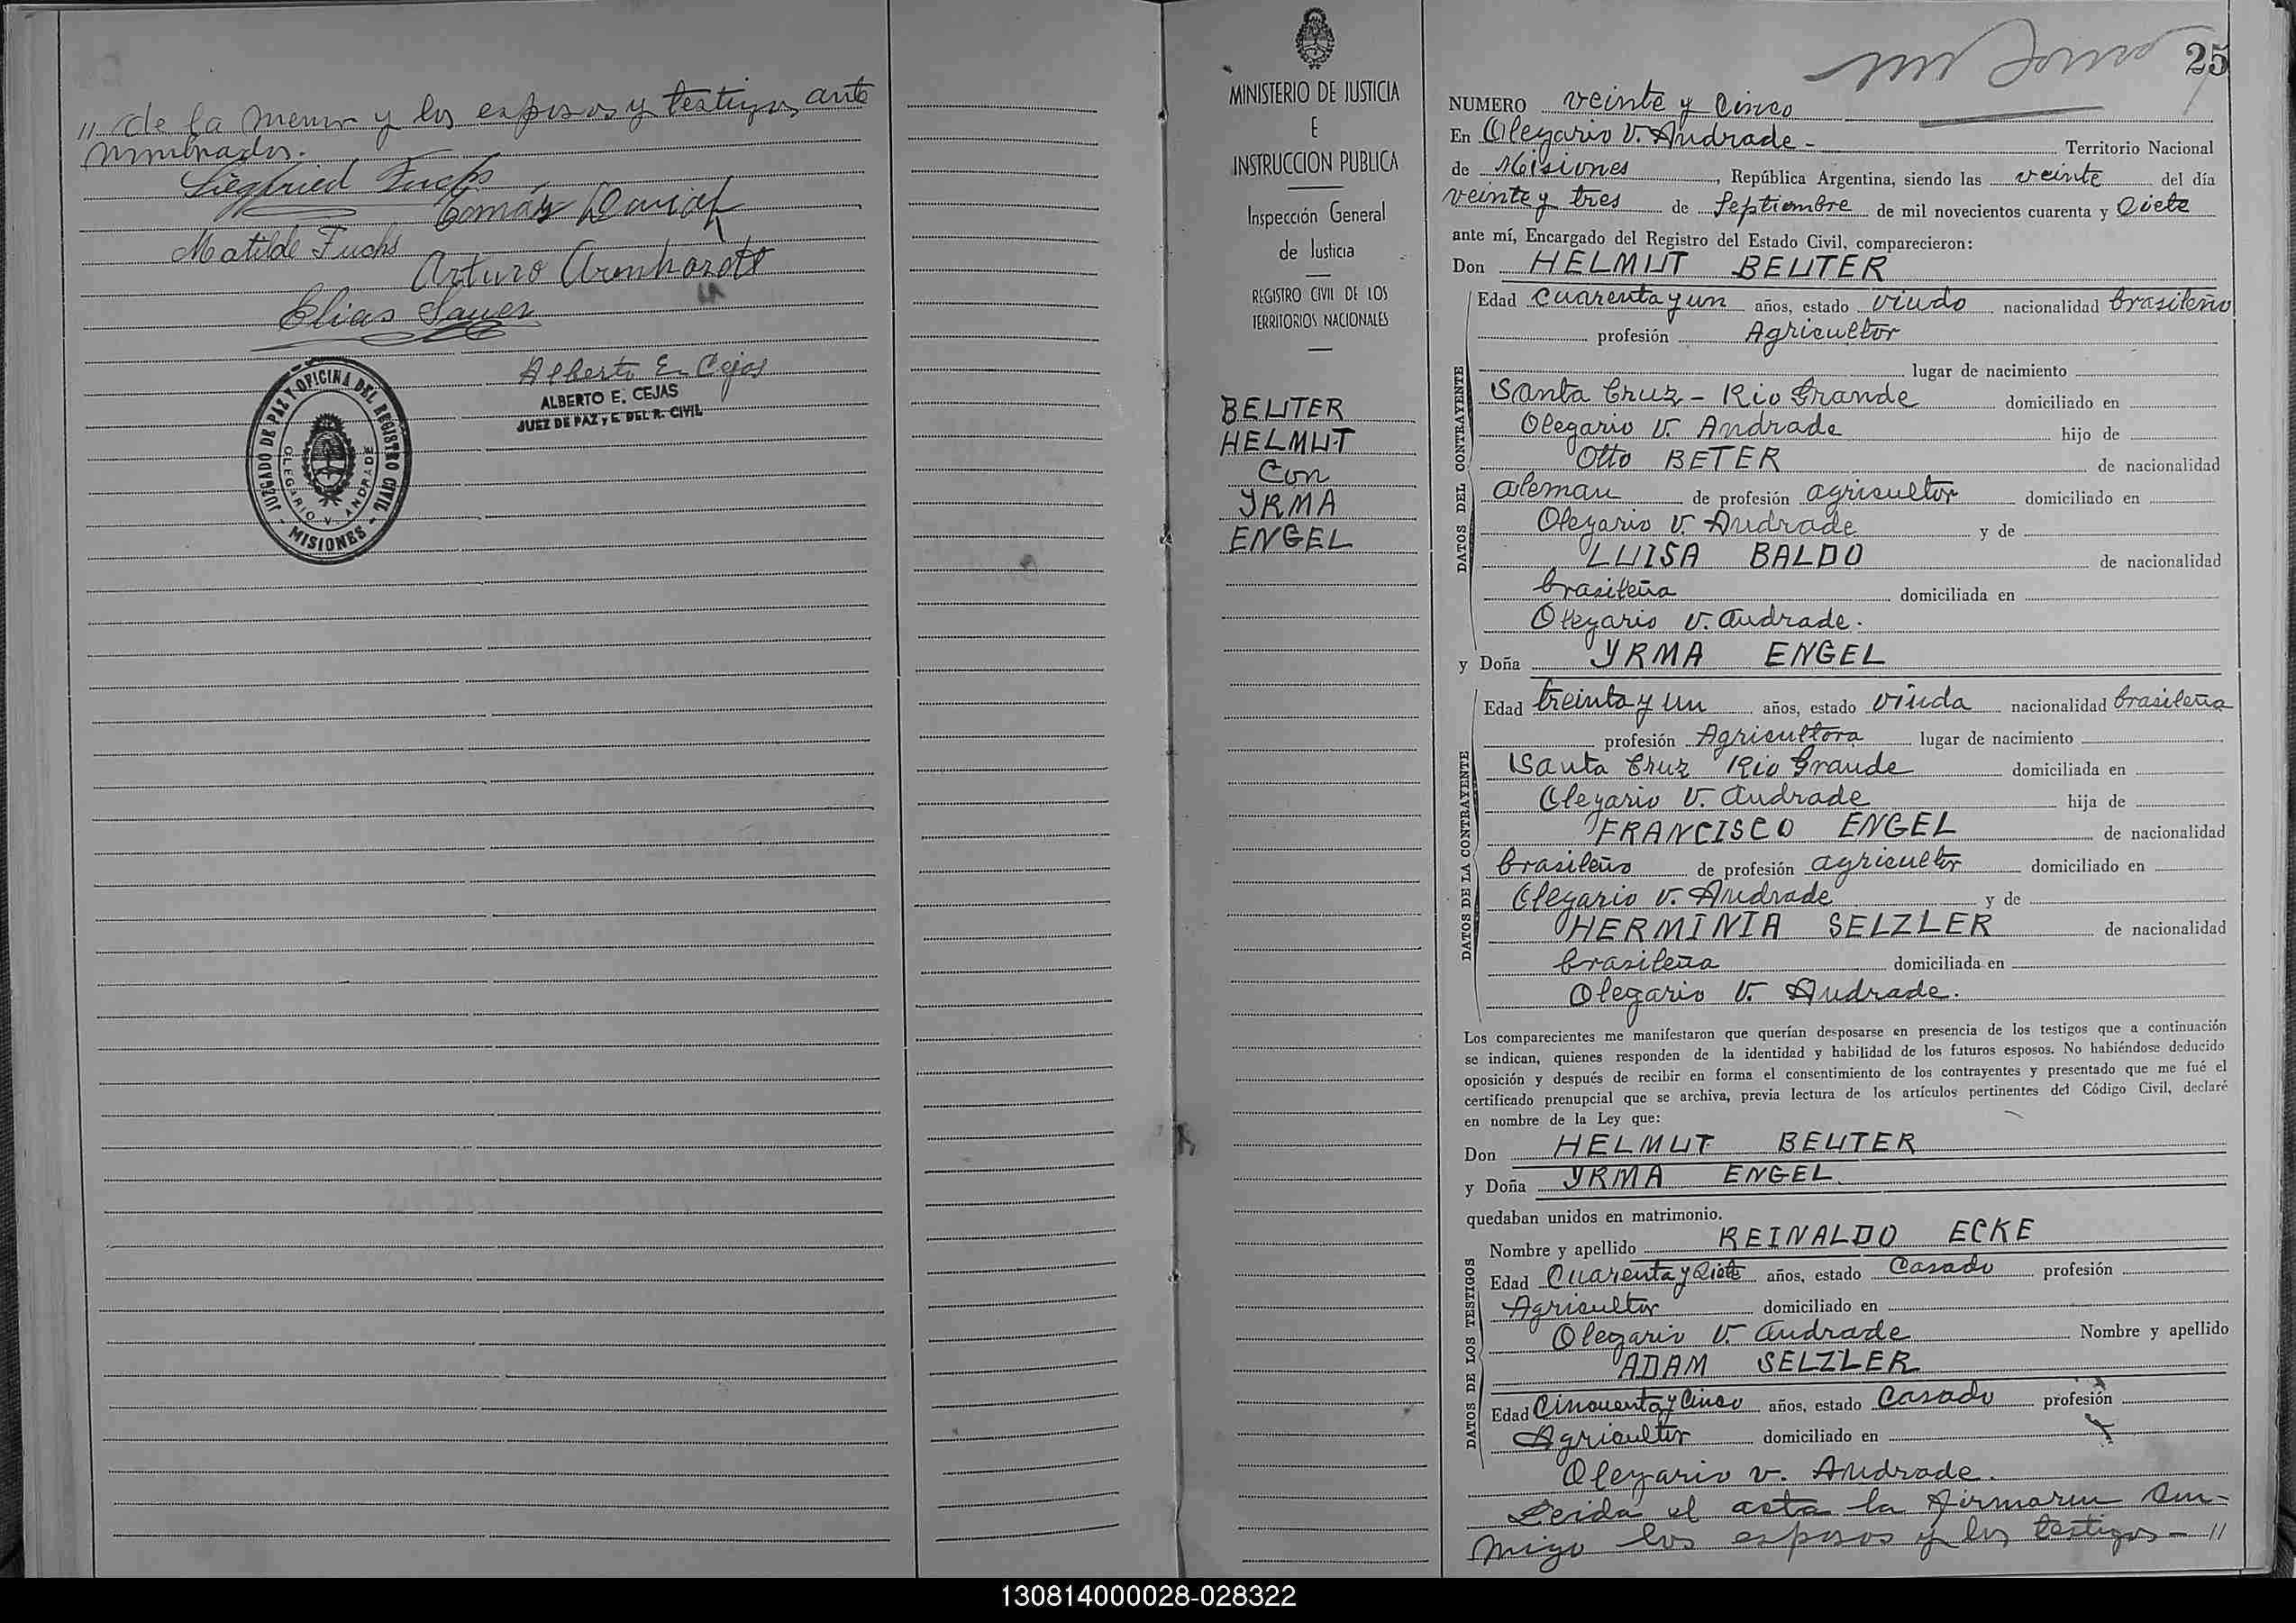 " de la menor y los esposos y testigos ante
nominados.
Siegfried Fuchs
Tomás
Matilde Fuchs
Arturo Arenhardt
Elias Sauer
Alberto E. Cejas
ALBERTO E. CEJAS
JUEZ DE PAZ y E. DEL R. CIVIL
JUZGADO DE PAZ Y OFICINA DEL REGISTRO CIVIL
OLEGARIO V. ANDRADE
- MISIONES -
MINISTERIO DE JUSTICIA
E
INSTRUCCION PUBLICA
Inspección General
de Justicia
REGISTRO CIVIL DE LOS
TERRITORIOS NACIONALES
BEUTER
HELMUT
Con
YRMA
ENGEL
25
NUMERO veinte y Cinco
En Olegario V. Andrade - Territorio Nacional
de Misiones, República Argentina, siendo las veinte del día
veinte y tres de Septiembre de mil novecientos cuarenta y Siete
ante mí, Encargado del Registro del Estado Civil, comparecieron:
Don HELMUT BEUTER
DATOS DEL CONTRAYENTE
Edad cuarenta y un años, estado viudo nacionalidad brasileño
profesión Agricultor
lugar de nacimiento
Santa Cruz - Rio Grande domiciliado en
Olegario V. Andrade hijo de
Otto BETER de nacionalidad
aleman de profesión agricultor domiciliado en
Olegario V. Andrade y de
LUISA BALDO de nacionalidad
brasileña domiciliada en
Olegario V. Andrade.
y Doña YRMA ENGEL
DATOS DE LA CONTRAYENTE
Edad treinta y un años, estado viuda nacionalidad brasileña
profesión Agricultora lugar de nacimiento
Santa Cruz Rio Grande domiciliada en
Olegario V. Andrade hija de
FRANCISCO ENGEL de nacionalidad
brasileño de profesión agricultor domiciliado en
Olegario V. Andrade y de
HERMINIA SELZLER de nacionalidad
brasileña domiciliada en
Olegario V. Andrade.
Los comparecientes me manifestaron que querían desposarse en presencia de los testigos que a continuación
se indican, quienes responden de la identidad y habilidad de los futuros esposos. No habiéndose deducido
oposición y después de recibir en forma el consentimiento de los contrayentes y presentado que me fué el
certificado prenupcial que se archiva, previa lectura de los artículos pertinentes del Código Civil, declaré
en nombre de la Ley que:
Don HELMUT BEUTER
y Doña YRMA ENGEL
quedaban unidos en matrimonio.
DATOS DE LOS TESTIGOS
Nombre y apellido REINALDO ECKE
Edad Cuarenta y Siete años, estado Casado profesión
Agricultor domiciliado en
Olegario V. Andrade Nombre y apellido
ADAM SELZLER
Edad Cincuenta y Cinco años, estado Casado profesión
Agricultor domiciliado en
Olegario V. Andrade.
Leida el acta la firmaron con-
migo los esposos y los testigos - "
130814000028-028322